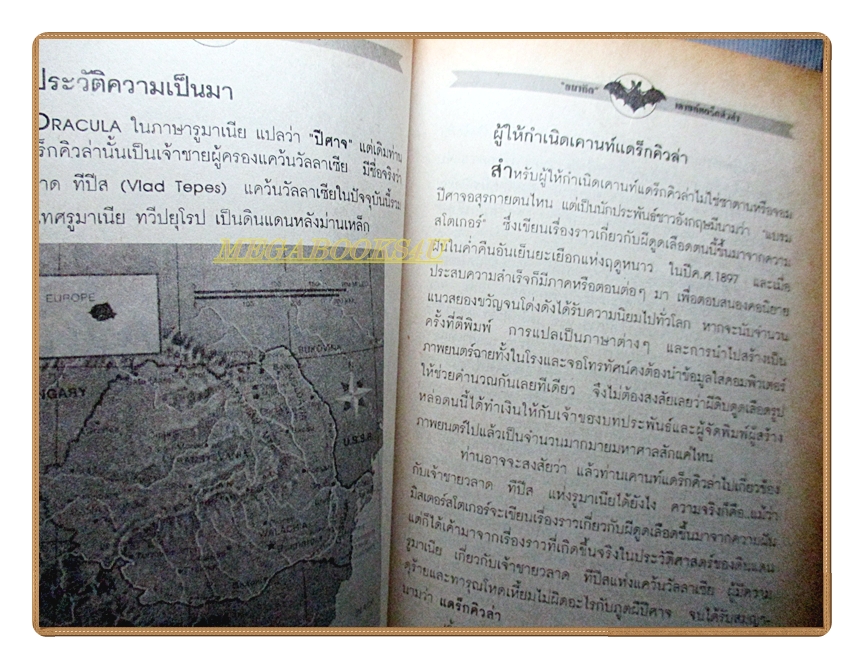 ประวัติความเป็นมา
DRACULA ในภาษารูมาเนีย แปลว่า "ปีศาจ" แต่เดิมท่าน
ร็กคิวล่านั้นเป็นเจ้าชายผู้ครองแคว้นวัลลาเซีย มีชื่อจริงว่า
ลาด ทีปีส (Vlad Tepes) แคว้นวัลลาเซียในปัจจุบันนี้รวม
เทศรูมาเนีย ทวีปยุโรป เป็นดินแดนหลังม่านเหล็ก
MEGABOOKS4U
EUROPE
BUKOVINA
NGARY
U.S.S.R.
TRANSYLVANIA
WALLACHIA
ผู้ให้กำเนิดเคานท์แดร็กคิวล่า
สำหรับผู้ให้กำเนิดเคานท์แดร็กคิวล่าไม่ใช่ซาตานหรือจอม
ปีศาจอสุรกายตนไหน แต่เป็นนักประพันธ์ชาวอังกฤษมีนามว่า "แบรม
สโตเกอร์" ซึ่งเขียนเรื่องราวเกี่ยวกับผีดูดเลือดตนนี้ขึ้นมาจากความ
ฝันในค่ำคืนอันเย็นยะเยือกแห่งฤดูหนาว ในปีค.ศ.1897 และเมื่อ
ประสบความสำเร็จก็มีภาคหรือตอนต่อๆ มา เพื่อตอบสนองคอนิยาย
แนวสยองขวัญจนโด่งดังได้รับความนิยมไปทั่วโลก หากจะนับจำนวน
ครั้งที่ตีพิมพ์ การแปลเป็นภาษาต่างๆ และการนำไปสร้างเป็น
ภาพยนตร์ฉายทั้งในโรงและจอโทรทัศน์คงต้องนำข้อมูลใส่คอมพิวเตอร์
ให้ช่วยคำนวณกันเลยทีเดียว จึงไม่ต้องสงสัยเลยว่าผีดิบดูดเลือดรูป
หล่อตนนี้ได้ทำเงินให้กับเจ้าของบทประพันธ์และผู้จัดพิมพ์ผู้สร้าง
ภาพยนตร์ไปแล้วเป็นจำนวนมากมายมหาศาลสักแค่ไหน
ท่านอาจจะสงสัยว่า แล้วท่านเคานท์แดร็กคิวล่าไปเกี่ยวข้อง
กับเจ้าชายวลาด ทีปีส แห่งรูมาเนียได้ยังไง ความจริงก็คือ..แม้ว่า
มิสเตอร์สโตเกอร์จะเขียนเรื่องราวเกี่ยวกับผีดูดเลือดขึ้นมาจากความฝัน
แต่ก็ได้เค้ามาจากเรื่องราวที่เกิดขึ้นจริงในประวัติศาสตร์ของดินแดน
รูมาเนีย เกี่ยวกับเจ้าชายวลาด ทีปีสแห่งแคว้นวัลลาเซีย ผู้มีความ
ดุร้ายและทารุณโหดเหี้ยมไม่ผิดอะไรกับภูตผีปีศาจ จนได้รับสมญา-
นามว่า แดร็กคิวล่า